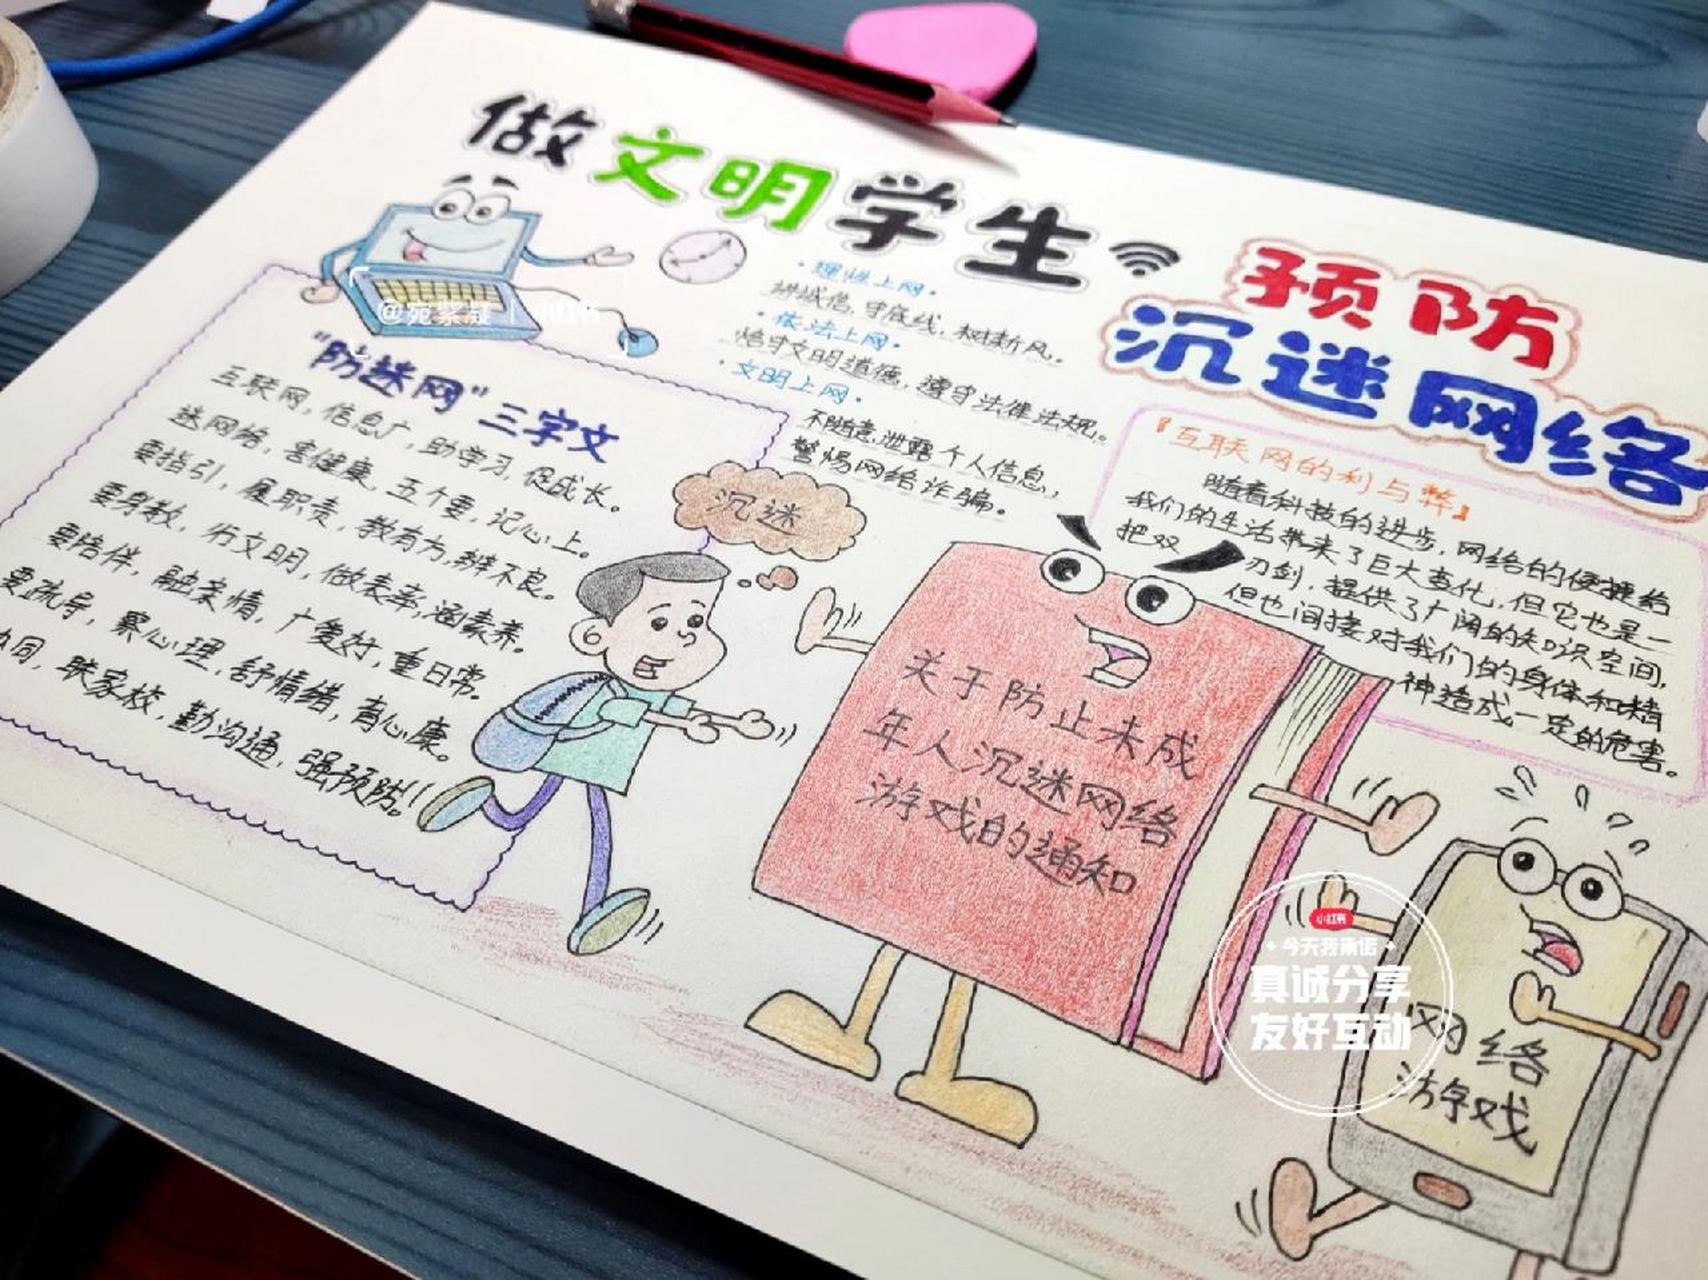 做文明学生
预防
沉迷网络
·理性上网·
讲诚信,守底线,树新风.
·依法上网·
恪守文明道德,遵守法律法规。
·文明上网·
不随意泄露个人信息,
警惕网络诈骗。
@宛絮凝 | 小红书
"防迷网"三字文
互联网,信息广,助学习,促成长。
迷网络,害健康,五个要,记心上。
要指引,履职责,教有方,辨不良。
要身教,行文明,做表率,涵素养。
要陪伴,融亲情,广爱好,重日常。
要疏导,察心理,舒情绪,育心康。
同,联家校,勤沟通,强预防!!
沉迷
『互联网的利与弊』
随着科技的进步,网络的便捷给
我们的生活带来了巨大变化,但它也是一
把双刃剑,提供了广阔的知识空间,
但也间接对我们的身体和精
神造成一定的危害。
关于防止未成
年人沉迷网络
游戏的通知
网络
游戏
小红书
今天我承信
真诚分享
友好互动